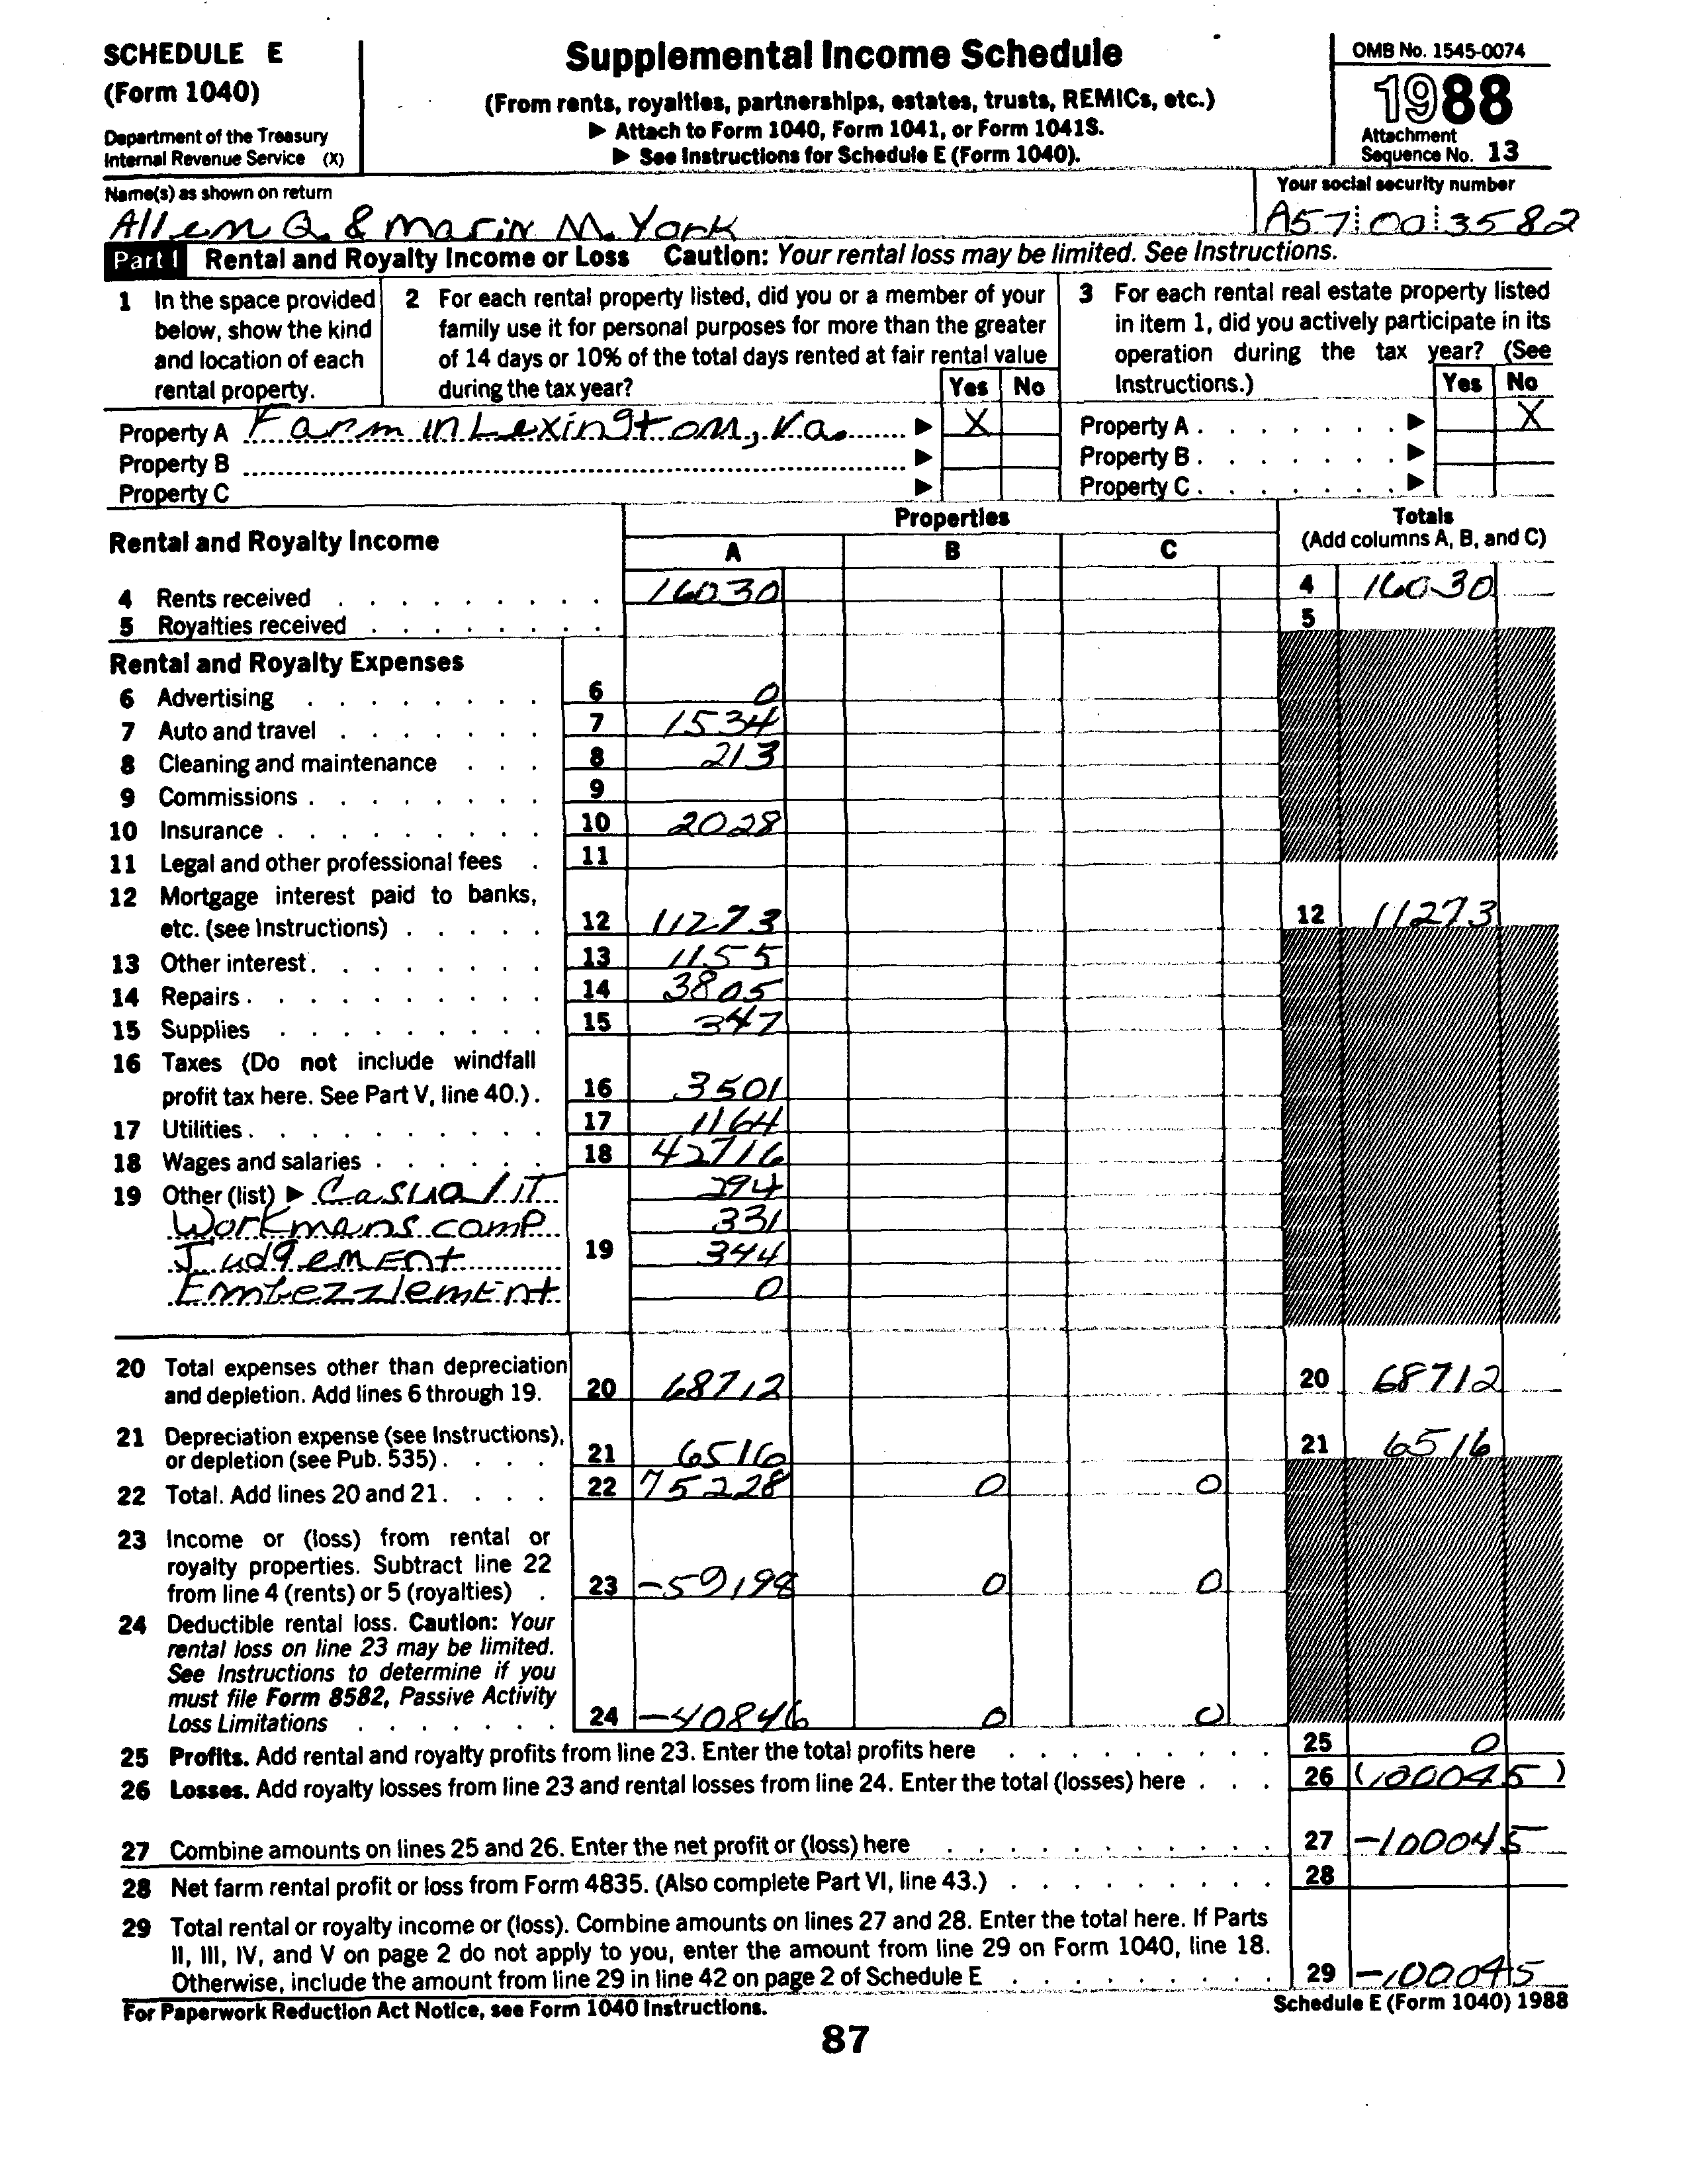 SCHEDULE E
(Form 1040)
Department of the Treasury
Internal Revenue Service (X)
Supplemental Income Schedule
(From rents, royalties, partnerships, estates, trusts, REMICs, etc.)
▶ Attach to Form 1040, Form 1041, or Form 1041S.
▶ See Instructions for Schedule E (Form 1040).
OMB No. 1545-0074
1988
Attachment
Sequence No. 13
Name(s) as shown on return
Allen Q. & Marin M. York
Your social security number
A57 00 3582
Part I Rental and Royalty Income or Loss Caution: Your rental loss may be limited. See Instructions.
1 In the space provided
below, show the kind
and location of each
rental property.
2 For each rental property listed, did you or a member of your
family use it for personal purposes for more than the greater
of 14 days or 10% of the total days rented at fair rental value
during the tax year?
Yes No
3 For each rental real estate property listed
in item 1, did you actively participate in its
operation during the tax year? (See
Instructions.)
Yes No
Property A Farm in Lexington, Va. ▶ X
Property B ▶
Property C ▶
Property A ▶ X
Property B ▶
Property C ▶
Rental and Royalty Income
Properties
A B C
Totals
(Add columns A, B, and C)
4 Rents received 16030 4 16030
5 Royalties received 5
Rental and Royalty Expenses
6 Advertising 6 0
7 Auto and travel 7 1534
8 Cleaning and maintenance 8 213
9 Commissions 9
10 Insurance 10 2028
11 Legal and other professional fees 11
12 Mortgage interest paid to banks,
etc. (see Instructions) 12 11273 12 11273
13 Other interest 13 1155
14 Repairs 14 3805
15 Supplies 15 347
16 Taxes (Do not include windfall
profit tax here. See Part V, line 40.) 16 3501
17 Utilities 17 1164
18 Wages and salaries 18 42716
19 Other (list) ▶ Casualit 294
Workmans comp 331
Judgement 19 344
Embezzlement 0
20 Total expenses other than depreciation
and depletion. Add lines 6 through 19. 20 68712 20 68712
21 Depreciation expense (see Instructions),
or depletion (see Pub. 535) 21 6516 21 6516
22 Total. Add lines 20 and 21. 22 75228 0 0
23 Income or (loss) from rental or
royalty properties. Subtract line 22
from line 4 (rents) or 5 (royalties) 23 -59198 0 0
24 Deductible rental loss. Caution: Your
rental loss on line 23 may be limited.
See Instructions to determine if you
must file Form 8582, Passive Activity
Loss Limitations 24 -40846 0 0
25 Profits. Add rental and royalty profits from line 23. Enter the total profits here 25 0
26 Losses. Add royalty losses from line 23 and rental losses from line 24. Enter the total (losses) here 26 (100045)
27 Combine amounts on lines 25 and 26. Enter the net profit or (loss) here 27 -100045
28 Net farm rental profit or loss from Form 4835. (Also complete Part VI, line 43.) 28
29 Total rental or royalty income or (loss). Combine amounts on lines 27 and 28. Enter the total here. If Parts
II, III, IV, and V on page 2 do not apply to you, enter the amount from line 29 on Form 1040, line 18.
Otherwise, include the amount from line 29 in line 42 on page 2 of Schedule E 29 -100045
For Paperwork Reduction Act Notice, see Form 1040 Instructions.
Schedule E (Form 1040) 1988
87